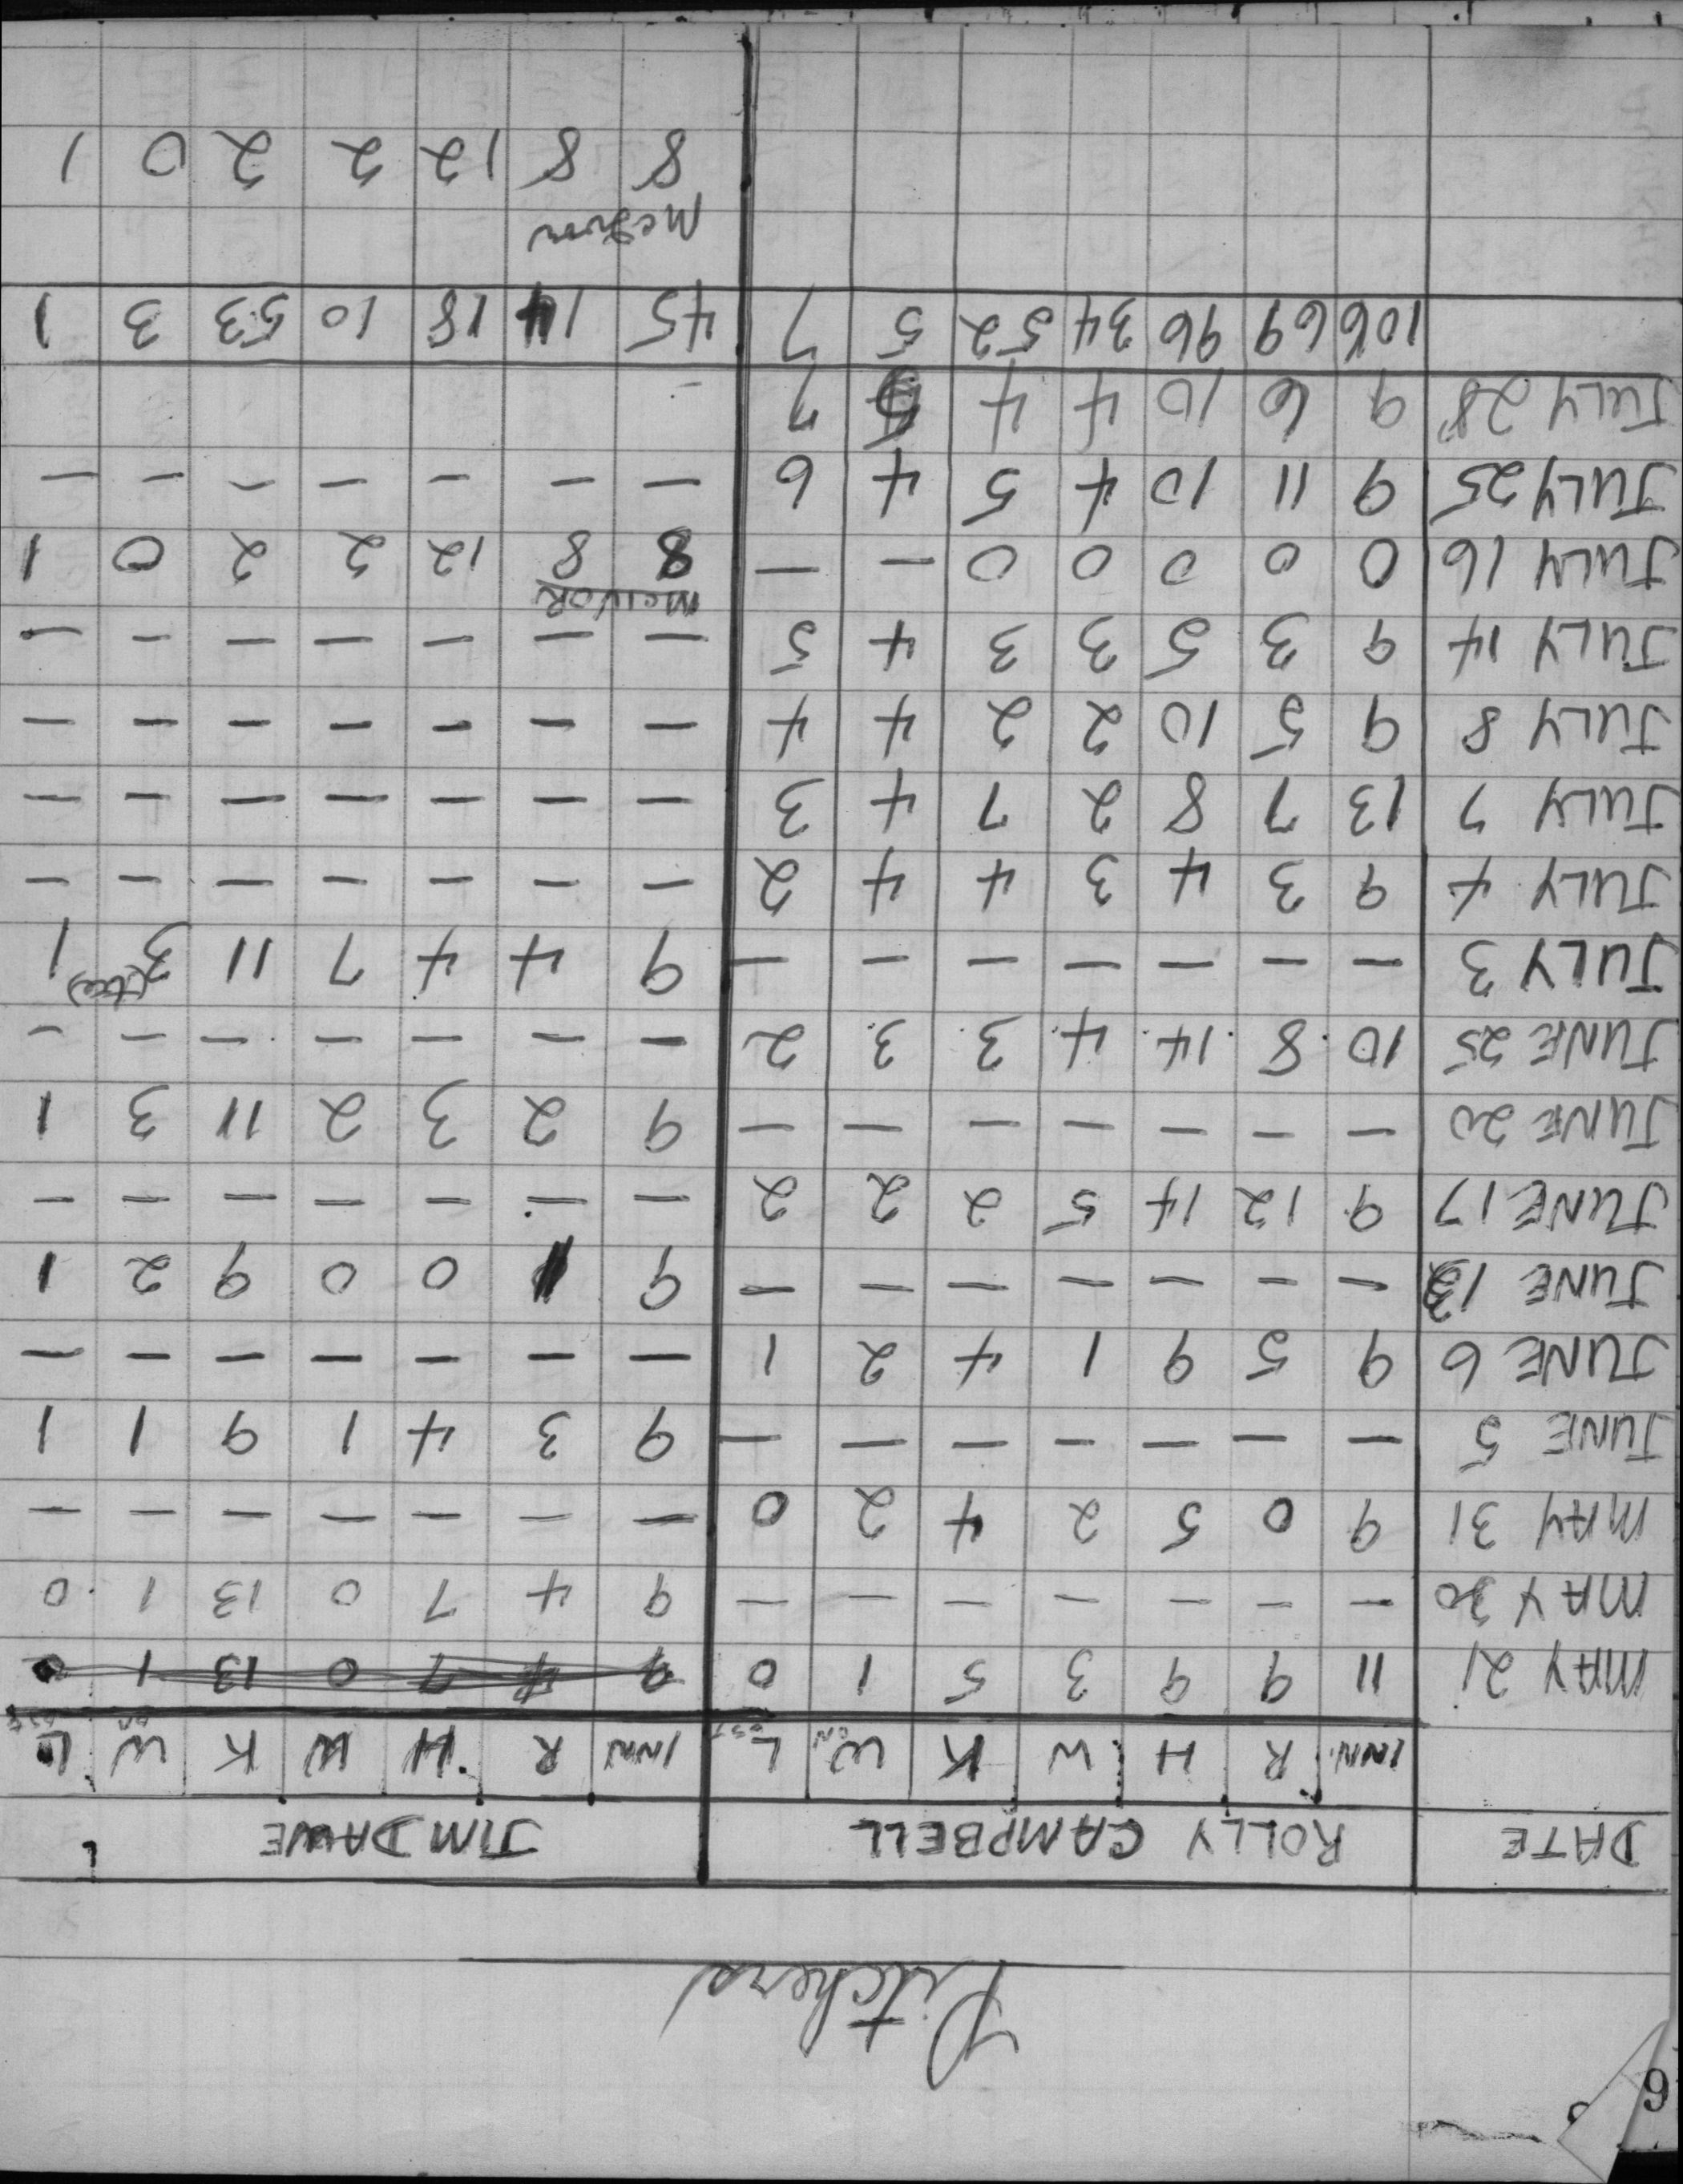 Pitchers
DATE ROLLY CAMPBELL JIM DAWE
INN. R H W K WON LOST INN R H W K WON LOST
MAY 21 11 9 9 3 5 1 0 9 4 7 0 13 1 0
MAY 30 - - - - - - - 9 4 7 0 13 1 0
MAY 31 9 0 5 2 4 2 0 - - - - - - -
JUNE 5 - - - - - - - 9 3 4 1 9 1 1
JUNE 6 9 5 9 1 4 2 1 - - - - - - -
JUNE 13 - - - - - - - 9 1 0 0 9 2 1
JUNE 17 9 12 14 5 2 2 2 - - - - - - -
JUNE 20 - - - - - - - 9 2 3 2 11 3 1
JUNE 25 10 8 14 4 3 3 2 - - - - - - -
JULY 3 - - - - - - - 9 4 4 7 11 3 (tie) 1
JULY 4 9 3 4 3 4 4 2 - - - - - - -
JULY 7 13 7 8 2 7 4 3 - - - - - - -
JULY 8 9 5 10 2 2 4 4 - - - - - - -
JULY 14 9 3 5 3 3 4 5 - - - - - - -
McIVOR
JULY 16 0 0 0 0 0 - - 8 8 12 2 2 0 1
JULY 25 9 11 10 4 5 4 6 - - - - - - -
JULY 28 9 6 10 4 4 5 7 -
106 69 96 34 52 5 7 45 14 18 10 53 3 1
McIvor
8 8 12 2 2 0 1
9